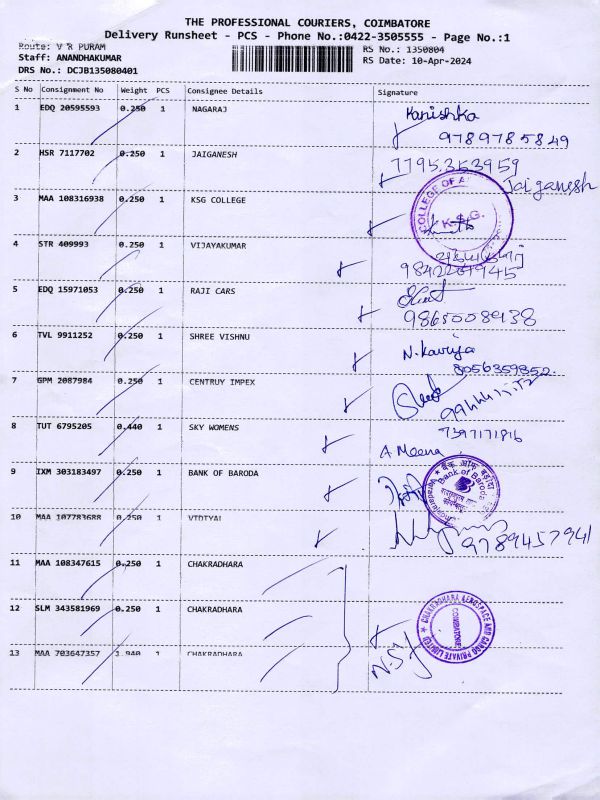 THE PROFESSIONAL COURIERS, COIMBATORE
Delivery Runsheet - PCS - Phone No.:0422-3505555 - Page No.:1
Route: V R PURAM
RS No.: 1350804
Staff: ANANDHAKUMAR
RS Date: 10-Apr-2024
DRS No.: DCJB135080401
S No Consignment No Weight PCS Consignee Details Signature
1 EDQ 20595593 0.250 1 NAGARAJ Kanishka
9789785849
2 HSR 7117702 0.250 1 JAIGANESH 7795353959
Jaiganesh
3 MAA 108316938 0.250 1 KSG COLLEGE
COLLEGE OF
K.S.G.
4 STR 409993 0.250 1 VIJAYAKUMAR
5 EDQ 15971053 0.250 1 RAJI CARS
9865008938
6 TVL 9911252 0.250 1 SHREE VISHNU N.Kavya
8056359852
7 GPM 2087984 0.250 1 CENTRUY IMPEX
8 TUT 6795205 0.440 1 SKY WOMENS 7397171816
A Meena
9 IXM 303183497 0.250 1 BANK OF BARODA
Bank of Baroda
10 MAA 107783688 0.250 1 VIDIYAL
9789457941
11 MAA 108347615 0.250 1 CHAKRADHARA
12 SLM 343581969 0.250 1 CHAKRADHARA
CHAKRADHARA AEROSPACE AND CARGO PRIVATE LIMITED
COIMBATORE
13 MAA 703647357 1.940 1 CHAKRADHARA